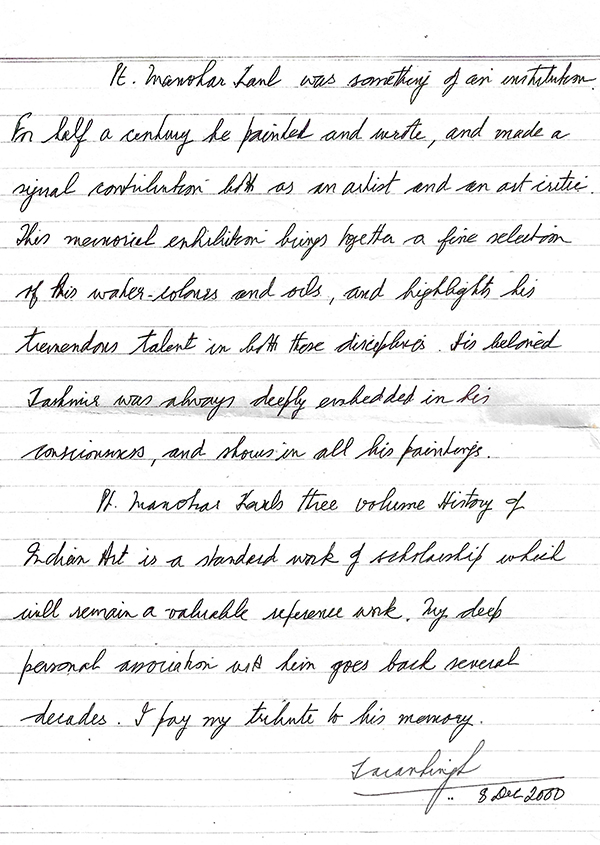 Pt. Manohar Kaul was something of an institution.
For half a century he painted and wrote, and made a
signal contribution both as an artist and an art critic.
This memorial exhibition brings together a fine selection
of his water-colours and oils, and highlights his
tremendous talent in both these disciplines. His beloved
Kashmir was always deeply embedded in his
consciousness, and shows in all his paintings.
Pt. Manohar Kauls three volume History of
Indian Art is a standard work of scholarship which
will remain a valuable reference work. My deep
personal association with him goes back several
decades. I pay my tribute to his memory.
Karan Singh
8 Dec 2000